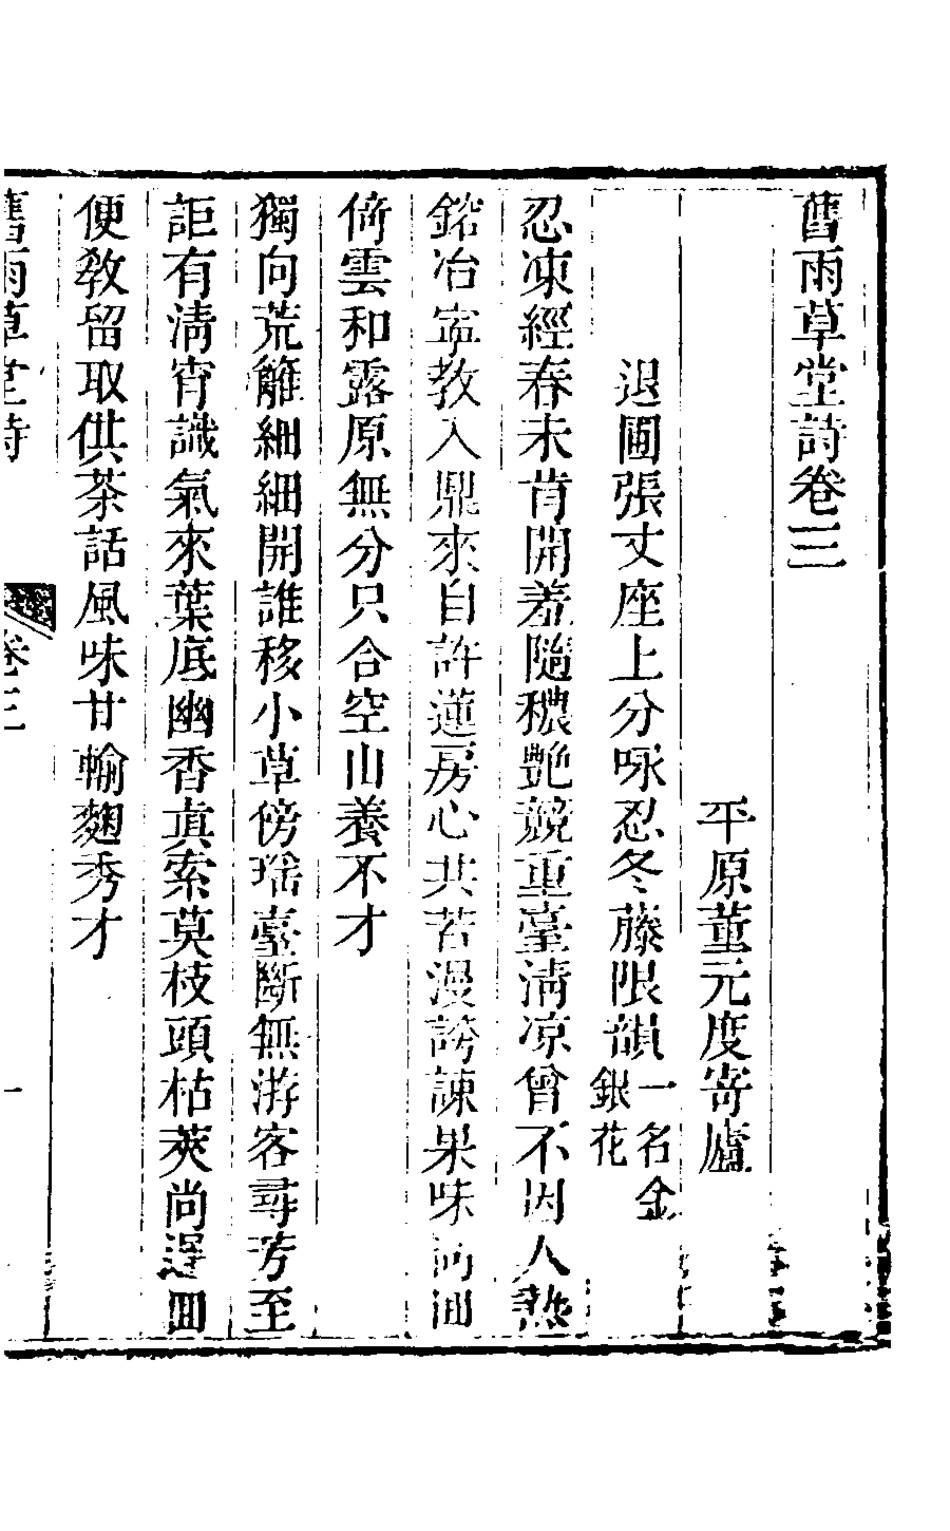 舊雨草堂詩卷三
平原董元度寄廬
退圃張丈座上分咏忍冬藤限韻一名金銀花
忍凍經春未肯開羞隨穠艷競重臺清凉曾不因人熱
鉛冶寧教入鼎來自許蓮房心共苦漫誇諫果味尚回
倚雲和露原無分只合空山養不才
獨向荒籬細細開誰移小草傍瑶臺斷無游客尋芳至
詎有清宵識氣來葉底幽香眞索莫枝頭枯莢尚遲回
便教留取供茶話風味甘輸麴秀才
舊雨草堂詩 卷三 一